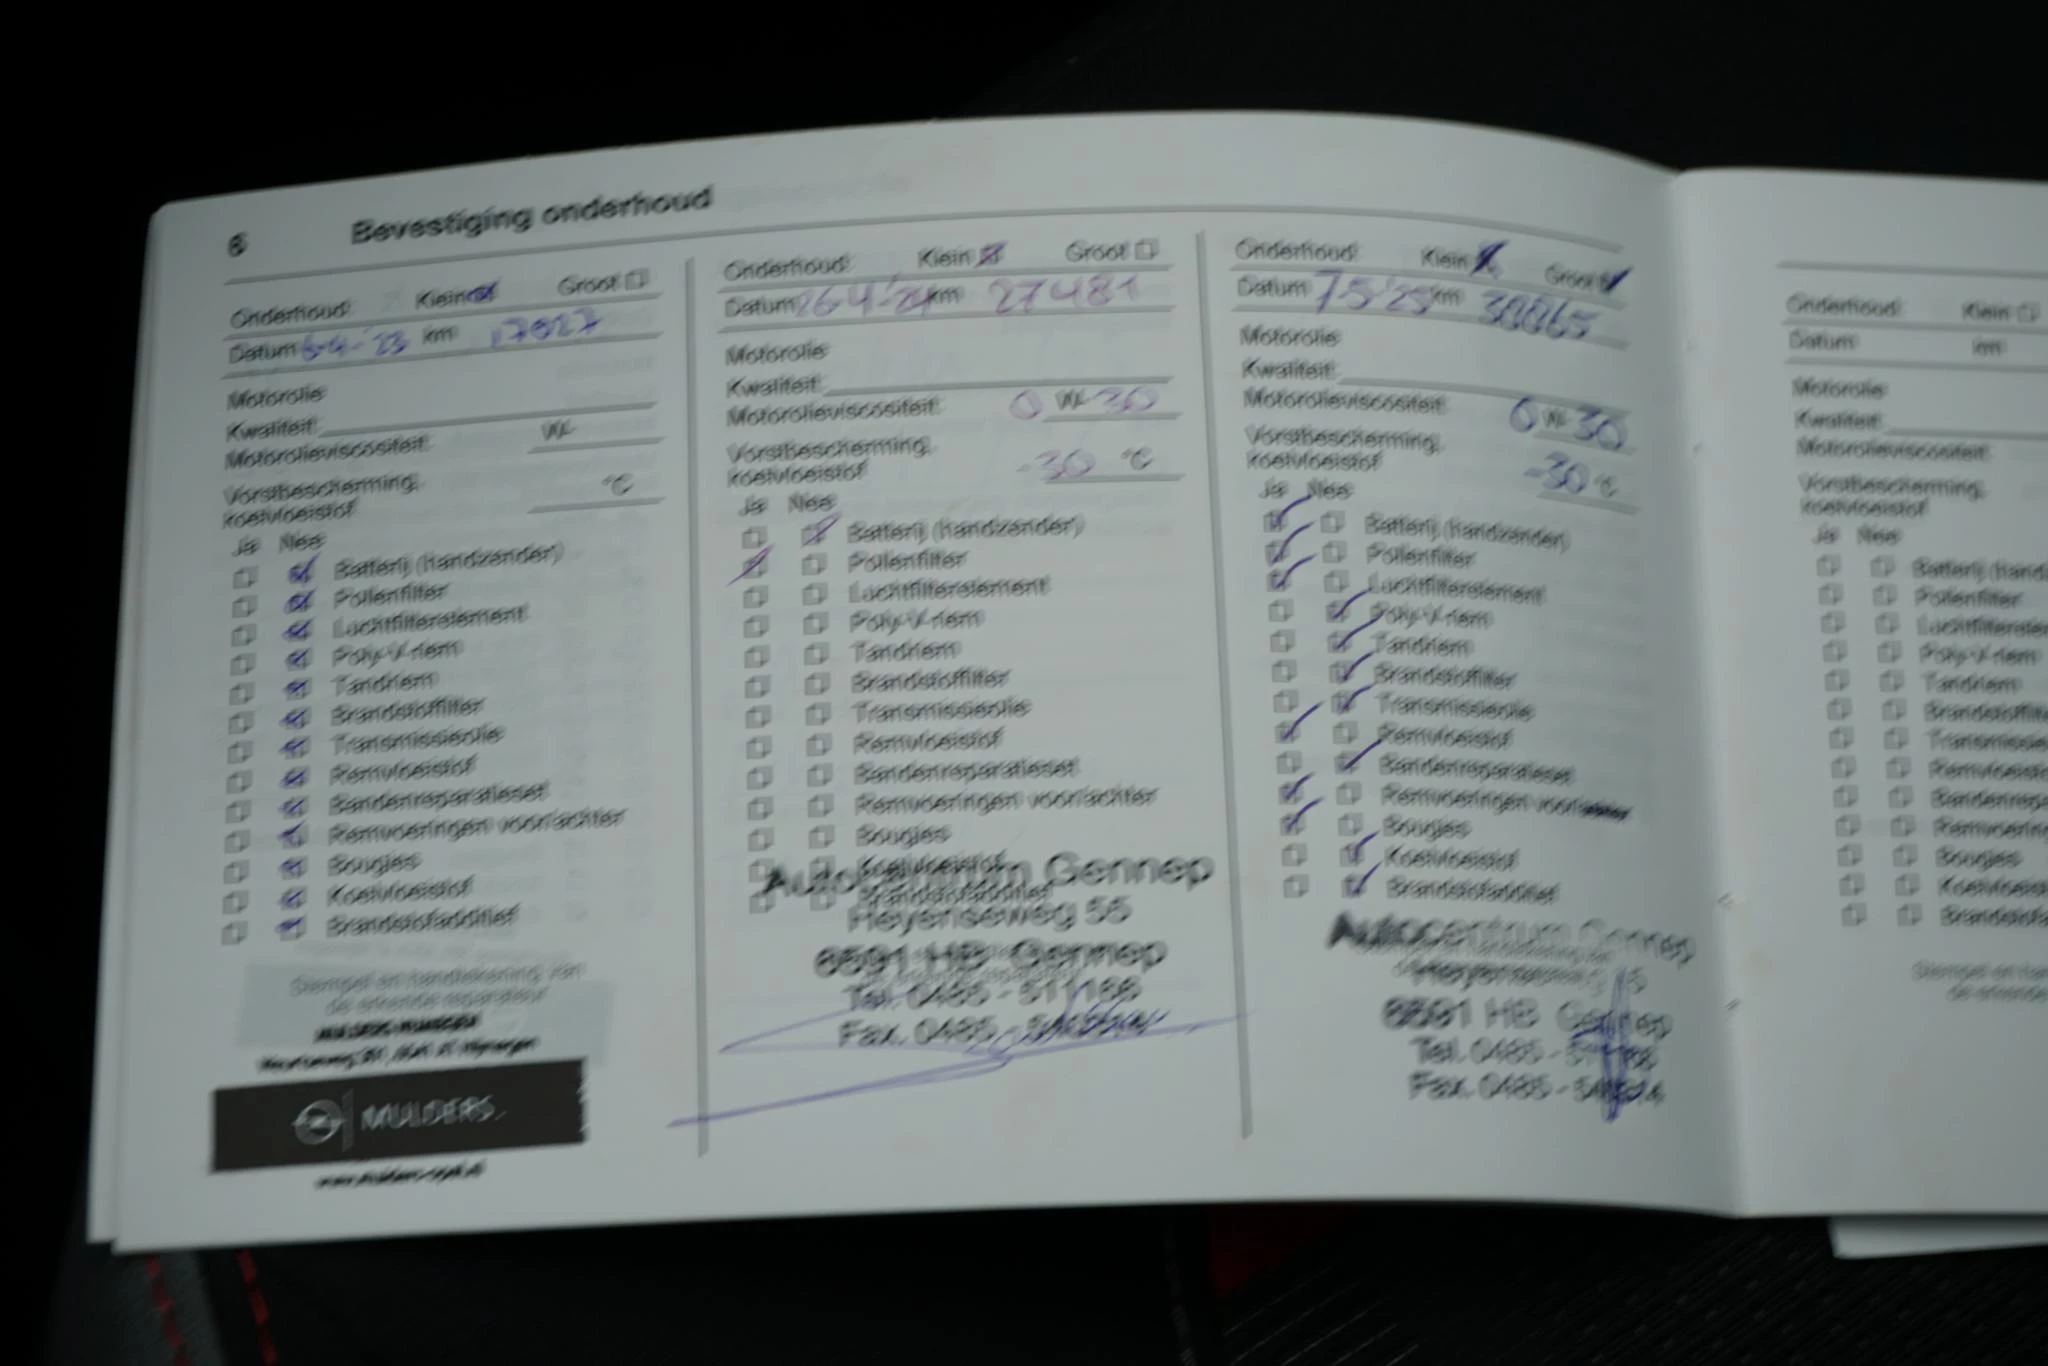 6 Bevestiging onderhoud
Onderhoud: Klein Groot
Datum 6-4-'23 km 17827
Motorolie
Kwaliteit:
Motorolieviscositeit: W-
Vorstbescherming,
koelvloeistof °C
Ja Nee
Batterij (handzender)
Pollenfilter
Luchtfilterelement
Poly-V-riem
Tandriem
Brandstoffilter
Transmissieolie
Remvloeistof
Bandenreparatieset
Remvoeringen voor/achter
Bougies
Koelvloeistof
Brandstofadditief
Stempel en handtekening van
de erkende reparateur
MULDERS
Onderhoud: Klein Groot
Datum 26-4-'24 km 27481
Motorolie
Kwaliteit:
Motorolieviscositeit: 0 W- 30
Vorstbescherming,
koelvloeistof -30 °C
Ja Nee
Batterij (handzender)
Pollenfilter
Luchtfilterelement
Poly-V-riem
Tandriem
Brandstoffilter
Transmissieolie
Remvloeistof
Bandenreparatieset
Remvoeringen voor/achter
Bougies
Koelvloeistof
Brandstofadditief
Autocentrum Gennep
Heyenseweg 55
6591 HB Gennep
Tel. 0485 - 511166
Fax. 0485 -
Onderhoud: Klein Groot
Datum 7-5-'25 km 38865
Motorolie
Kwaliteit:
Motorolieviscositeit: 0 W- 30
Vorstbescherming,
koelvloeistof -30 °C
Ja Nee
Batterij (handzender)
Pollenfilter
Luchtfilterelement
Poly-V-riem
Tandriem
Brandstoffilter
Transmissieolie
Remvloeistof
Bandenreparatieset
Remvoeringen voor/achter
Bougies
Koelvloeistof
Brandstofadditief
Autocentrum Gennep
6591 HB Gennep
Tel. 0485 -
Fax. 0485 -
Onderhoud: Klein
Datum km
Motorolie
Kwaliteit:
Motorolieviscositeit:
Vorstbescherming,
koelvloeistof
Ja Nee
Batterij (handz
Pollenfilter
Luchtfilterele
Poly-V-riem
Tandriem
Brandstoffilt
Transmissie
Remvloeisto
Bandenrep
Remvoering
Bougies
Koelvloeist
Brandstofa
Stempel en hand
de erkende